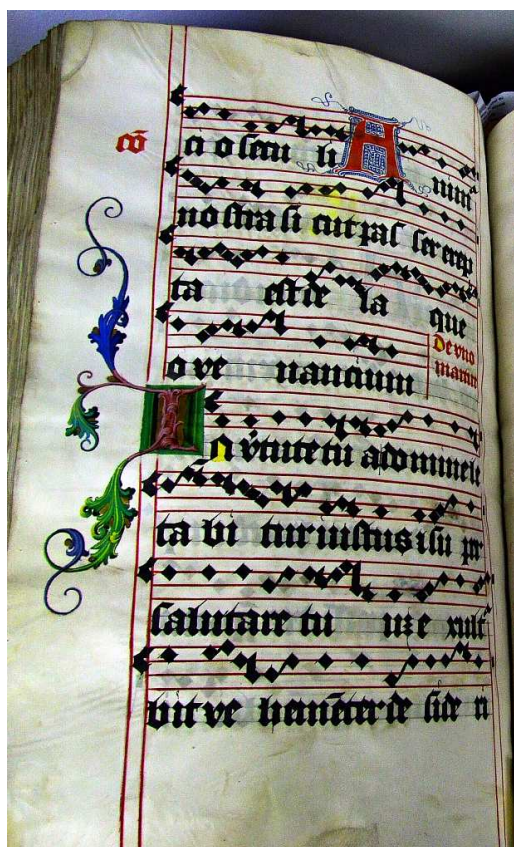 cō
ci o secu li Anima
nostra si cut pas ser erep
ta est de la que
o ve nancium
De uno
martire
In v̓tute tu a domine le
ta bi tur iustus ⁊ su per
salutare tu uʒ e xulta
bit ve hemēter de side ri